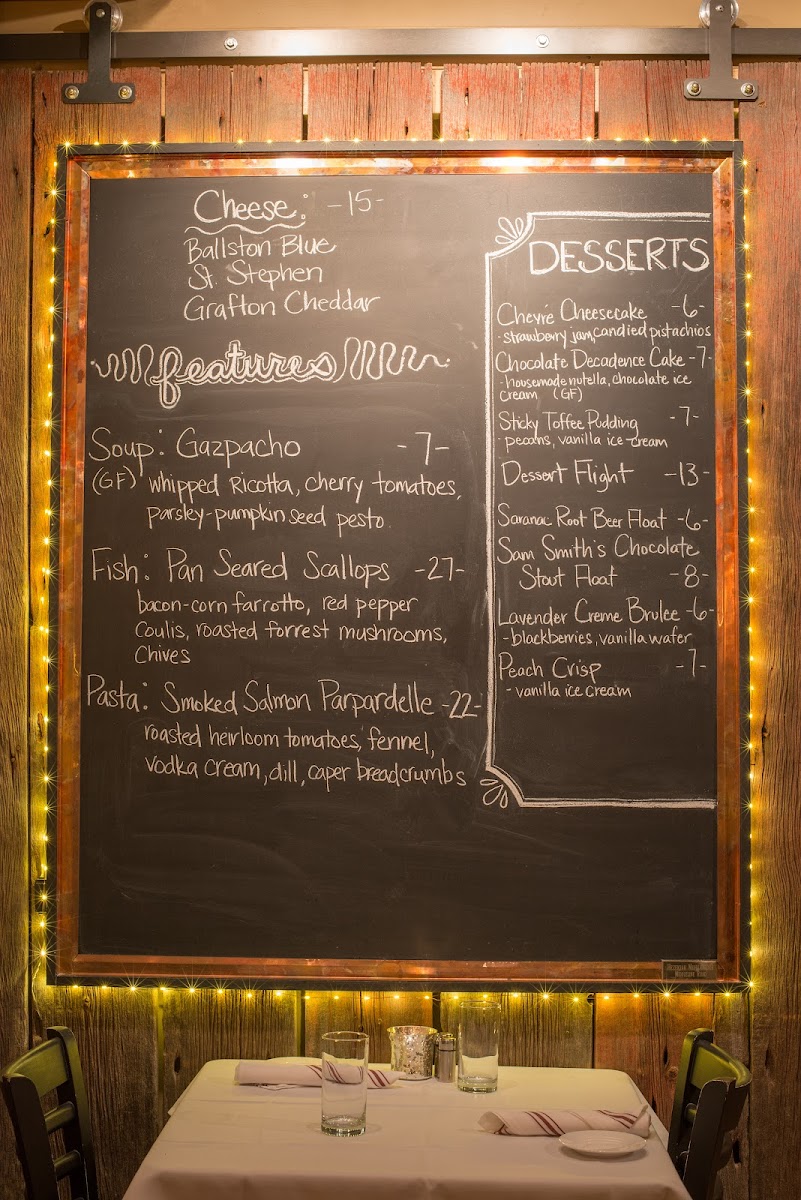 Cheese: -15-
Ballston Blue
St. Stephen
Grafton Cheddar
features
Soup: Gazpacho -7-
(GF) whipped Ricotta, cherry tomatoes,
parsley-pumpkin seed pesto.
Fish: Pan Seared Scallops -27-
bacon-corn farrotto, red pepper
Coulis, roasted forrest mushrooms,
Chives
Pasta: Smoked Salmon Parpardelle -22-
roasted heirloom tomatoes, fennel,
vodka cream, dill, caper breadcrumbs
DESSERTS
Chevré Cheesecake -6-
- strawberry jam, candied pistachios
Chocolate Decadence Cake -7-
- housemade nutella, chocolate ice
cream (GF)
Sticky Toffee Pudding -7-
- pecans, vanilla ice cream
Dessert Flight -13-
Saranac Root Beer Float -6-
Sam Smith's Chocolate
Stout Float -8-
Lavender Creme Brulee -6-
- blackberries, vanilla wafer
Peach Crisp -7-
- vanilla ice cream